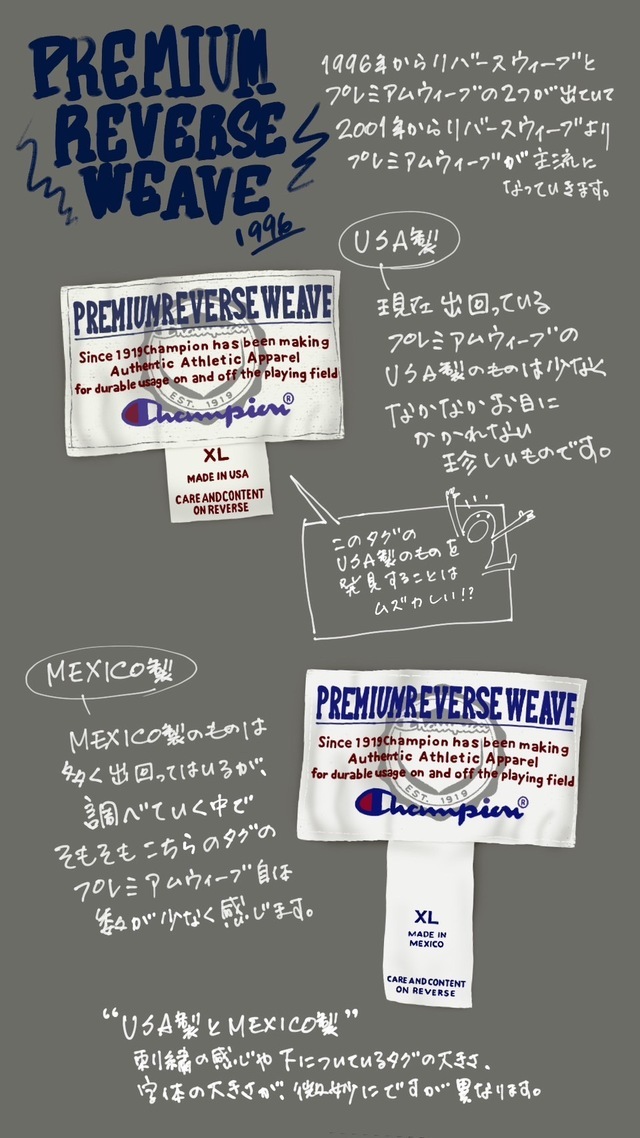 PREMIUM
REVERSE
WEAVE
1996
1996年からリバースウィーブと
プレミアムウィーブの2つが出ていて
2001年からリバースウィーブより
プレミアムウィーブが主流に
なっていきます。
USA製
PREMIUNREVERSE WEAVE
Champion
Since 1919 Champion has been making
Authentic Athletic Apparel
for durable usage on and off the playing field
EST. 1919
Champion®
XL
MADE IN USA
CARE AND CONTENT
ON REVERSE
現在出回っている
プレミアムウィーブの
USA製のものは少なく
なかなかお目に
かかれない
珍しいものです。
このタグの
USA製のものを
発見することは
ムズかしい!?
MEXICO製
MEXICO製のものは
多く出回ってはいるが、
調べていく中で
そもそもこちらのタグの
プレミアムウィーブ自体
数が少なく感じます。
PREMIUNREVERSE WEAVE
Champion
Since 1919 Champion has been making
Authentic Athletic Apparel
for durable usage on and off the playing field
EST. 1919
Champion®
XL
MADE IN
MEXICO
CARE AND CONTENT
ON REVERSE
“USA製とMEXICO製”
刺繍の感じや下についているタグの大きさ、
字体の大きさが、微妙にですが異なります。